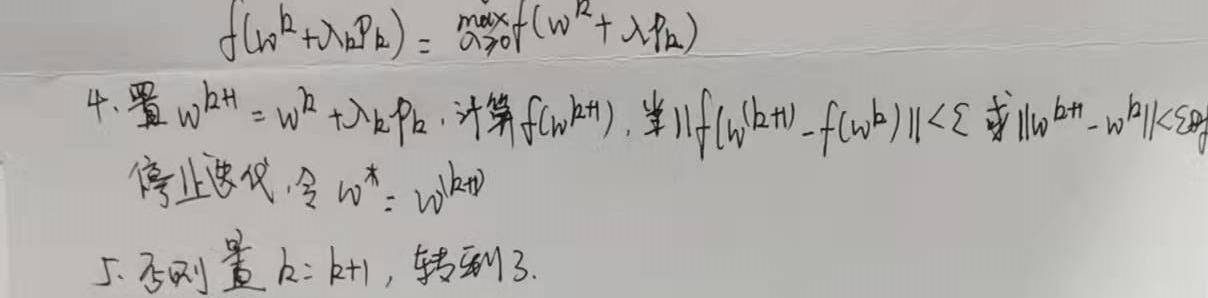 f(w^k+λ_kP_k) = max_{λ≥0} f(w^k+λP_k)
4. 置 w^{k+1} = w^k+λ_kP_k, 计算 f(w^{k+1}), 当 ||f(w^{(k+1)} - f(w^k)|| < ε 或 ||w^{k+1} - w^k|| < ε 时
停止迭代, 令 w^* = w^{(k+1)}
5. 否则置 k = k+1, 转到 3.